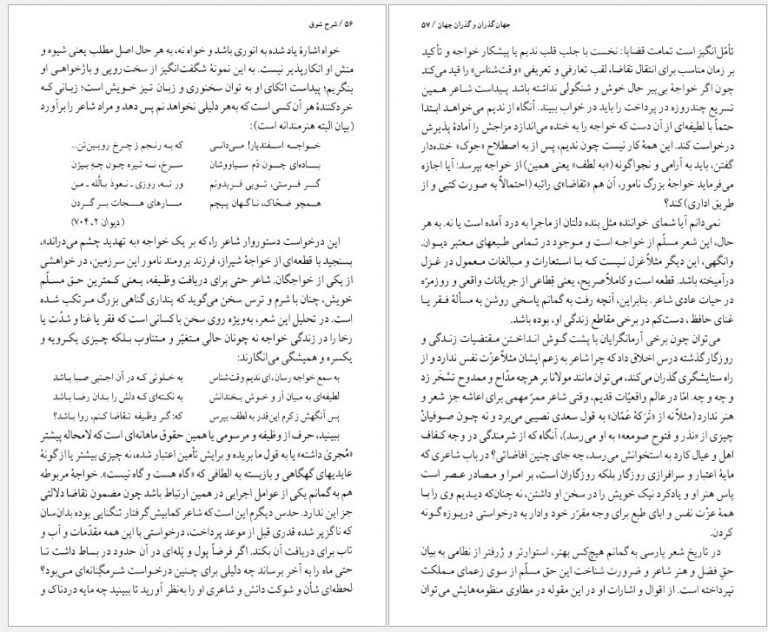 ۵۶ / شرح شوق
خواه اشارهٔ یاد شده به انوری باشد و خواه نه، به هر حال اصل مطلب یعنی شیوه و
منش او انکارپذیر نیست. به این نمونهٔ شگفت‌انگیز از سخت‌رویی و باژخواهی او
بنگریم؛ پیداست اتکای او به توان سخنوری و زبان تیز خویش است؛ زبانی که
خردکنندهٔ هر آن کسی است که به‌هر دلیلی نخواهد نم پس دهد و مراد شاعر را برآورد
(بیان البته هنرمندانه است):
خواجه اسفندیار! می‌دانی که به رنجم ز چرخ رویین‌تن...
باده‌ای چون دَم سیاووشان سرخ، نه تیره چون چه بیژن
گر فرستی، تویی فریدونم ور نه، روزی ـ نعوذ بالله ـ من
همچو ضحّاک، ناگهان پیچم مارهای هجات بر گردن
(دیوان ۲، ۷۰۴)
این درخواست دستوروار شاعر را، که بر یک خواجه «به تهدید چشم می‌دراند»،
بسنجید با قطعه‌ای از خواجهٔ شیراز، فرزند برومند نامور این سرزمین، در خواهشی
از یکی از خواجگان. شاعر حتی برای دریافت وظیفه، یعنی کمترین حق مسلّم
خویش، چنان با شرم و ترس سخن می‌گوید که پنداری گناهی بزرگ مرتکب شده
است. در تحلیل این شعر، به‌ویژه روی سخن با کسانی است که فقر یا غنا و شدّت یا
رخا را در زندگی خواجه نه چونان حالی متغیّر و متناوب بلکه چیزی یکرویه و
یکسره و همیشگی می‌انگارند:
به سمع خواجه رسان، ای ندیم وقت‌شناس به خلوتی که در آن اجنبی صبا باشد
لطیفه‌ای به میان آر و خوش بخندانش به نکته‌ای که دلش را بدان رضا باشد
پس آنگهش زکرم این‌قدر به لطف بپرس که: گر وظیفه تقاضا کنم، روا باشد؟
ببینید، حرف از وظیفه و مرسومی یا همین حقوق ماهانه‌ای است که لامحاله پیشتر
«مُجریٰ داشته» یا به قول ما بریده و برایش تأمین اعتبار شده، نه چیزی بیشتر یا ازگونهٔ
عایدیهای گهگاهی و بازبسته به الطافی که «گاه هست و گاه نیست». خواجهٔ مربوطه
هم به گمانم یکی از عوامل اجرایی در همین ارتباط باشد چون مضمون تقاضا دلالتی
جز این ندارد. حدس دیگرم این است که شاعر کمابیش گرفتار تنگنایی بوده بدان‌سان
که ناگزیر شده قدری قبل از موعد پرداخت، درخواستی با این همه مقدّمات و آب و
تاب برای دریافت آن بکند. اگر فرضاً پول و پَله‌ای در آن حدود در بساط داشت تا
حتی ماه را به آخر برساند چه دلیلی برای چنین درخواست شرمگِنانه‌ای می‌بود؟
لحظه‌ای شأن و شوکت دانش و شاعری او را به‌نظر آورید تا ببینید چه مایه دردناک و
جهان گذران و گذران جهان / ۵۷
تأمّل‌انگیز است تمامت قضایا: نخست با جلب قلب ندیم یا پیشکار خواجه و تأکید
بر زمان مناسب برای انتقال تقاضا، لقب تعارفی و تعریفی «وقت‌شناس» را قید می‌کند
چون اگر خواجهٔ بی‌پیر حال خوش و شنگولی نداشته باشد پیداست شاعر همین
تسریع چندروزه در پرداخت را باید در خواب ببیند. آنگاه از ندیم می‌خواهد ابتدا
حتماً با لطیفه‌ای از آن دست که خواجه را به خنده می‌اندازد مزاجش را آمادهٔ پذیرش
درخواست کند. این همهٔ کار نیست چون ندیم، پس از به اصطلاح «جوک» خنده‌دار
گفتن، باید به آرامی و نجواگونه («به لطف» یعنی همین) از خواجه بپرسد: آیا اجازه
می‌فرماید خواجهٔ بزرگ نامور، آن هم «تقاضا»ی راتبه (احتمالاً به صورت کتبی و از
طریق اداری) کند؟
نمی‌دانم آیا شمای خواننده مثل بنده دلتان از ماجرا به درد آمده است یا نه. به هر
حال، این شعر مسلّم از خواجه است و موجود در تمامی طبعهای معتبر دیوان.
وانگهی، این دیگر مثلاً غزل نیست که با استعارات و مبالغات معمول در غزل
درآمیخته باشد. قطعه است و کاملاً صریح، یعنی قِطاعی از جریانات واقعی و روزمرّه
در حیات عادی شاعر. بنابراین، آنچه رفت به گمانم پاسخی روشن به مسألهٔ فقر یا
غنای حافظ، دست‌کم در برخی مقاطع زندگی او، بوده باشد.
می‌توان چون برخی آرمانگرایان با پشت گوش انداختن مقتضیات زندگی و
روزگار گذشته درس اخلاق داد که چرا شاعر به زعم ایشان مثلاً عزّت نفس ندارد و از
راه ستایشگری گذران می‌کند، می‌توان مانند مولانا بر هرچه مدّاح و ممدوح تسخَر زد
و چه و چه. امّا در عالم واقعیّات قدیم، وقتی شاعر ممرّ مهمی برای اعاشه جز شعر و
هنر ندارد (مثلاً نه از «تَرکهٔ عَمّان» به قول سعدی نصیبی می‌برد و نه چون صوفیان
چیزی از «نذر و فتوح صومعه» به او می‌رسد)، آنگاه که از شرمندگی در وجه کفاف
اهل و عیال کارد به استخوانش می‌رسد، چه جای چنین افاضاتی؟ در باب شاعری که
مایهٔ اعتبار و سرافرازی روزگار بلکه روزگاران است، بر امرا و مصادر عصر است
پاس هنر او و یادکرد نیک خویش را در سخن او داشتن، نه چنان‌که دیدیم وی را با
همهٔ عزّت نفس و ابای طبع برای وجه مقرّر خود وادار به درخواستی دریوزه گونه
کردن.
در تاریخ شعر پارسی به‌گمانم هیچ‌کس بهتر، استوارتر و ژرفتر از نظامی به بیان
حقِ فضل و هنر شاعر و ضرورت شناخت این حق مسلّم از سوی زعمای مملکت
نپرداخته است. از اقوال و اشارات او در این مقوله در مطاوی منظومه‌هایش می‌توان